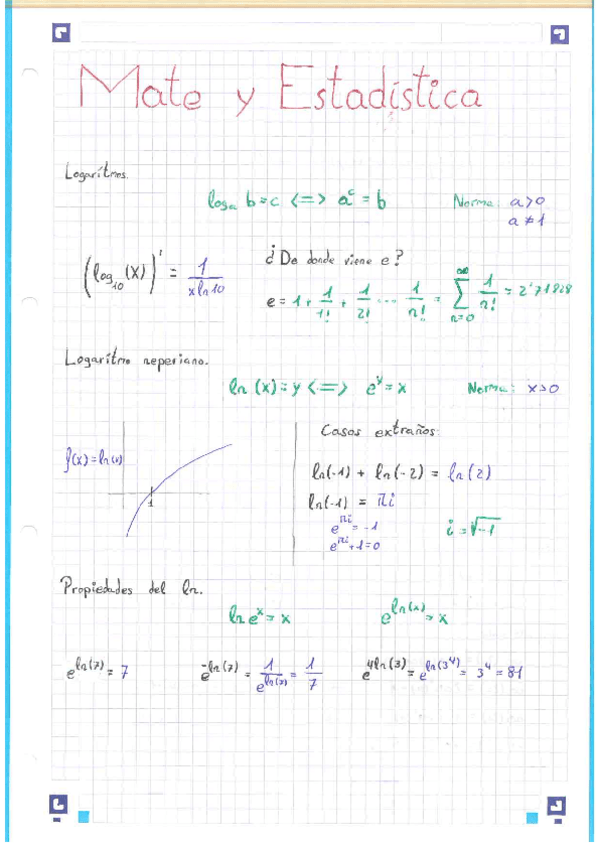 Mate y Estadística
Logarítmos.
logₐ b = c <=> aᶜ = b Norma: a>0
a ≠ 1
(log₁₀(x))' = 1/(x ln 10)
¿De donde viene e?
e = 1 + 1/1! + 1/2! ... 1/n! = ∑_{n=0}^{∞} 1/n! = 2'71828
Logarítmo neperiano.
ln(x) = y <=> eʸ = x Norma: x>0
f(x) = ln(x)
1
Casos extraños:
ln(-1) + ln(-2) = ln(2)
ln(-1) = πi
e^{πi} = -1
e^{πi} + 1 = 0
i = √-1
Propiedades del ln.
ln eˣ = x e^{ln(x)} = x
e^{ln(7)} = 7 e^{-ln(7)} = 1/e^{ln(7)} = 1/7 e^{4ln(3)} = e^{ln(3⁴)} = 3⁴ = 81